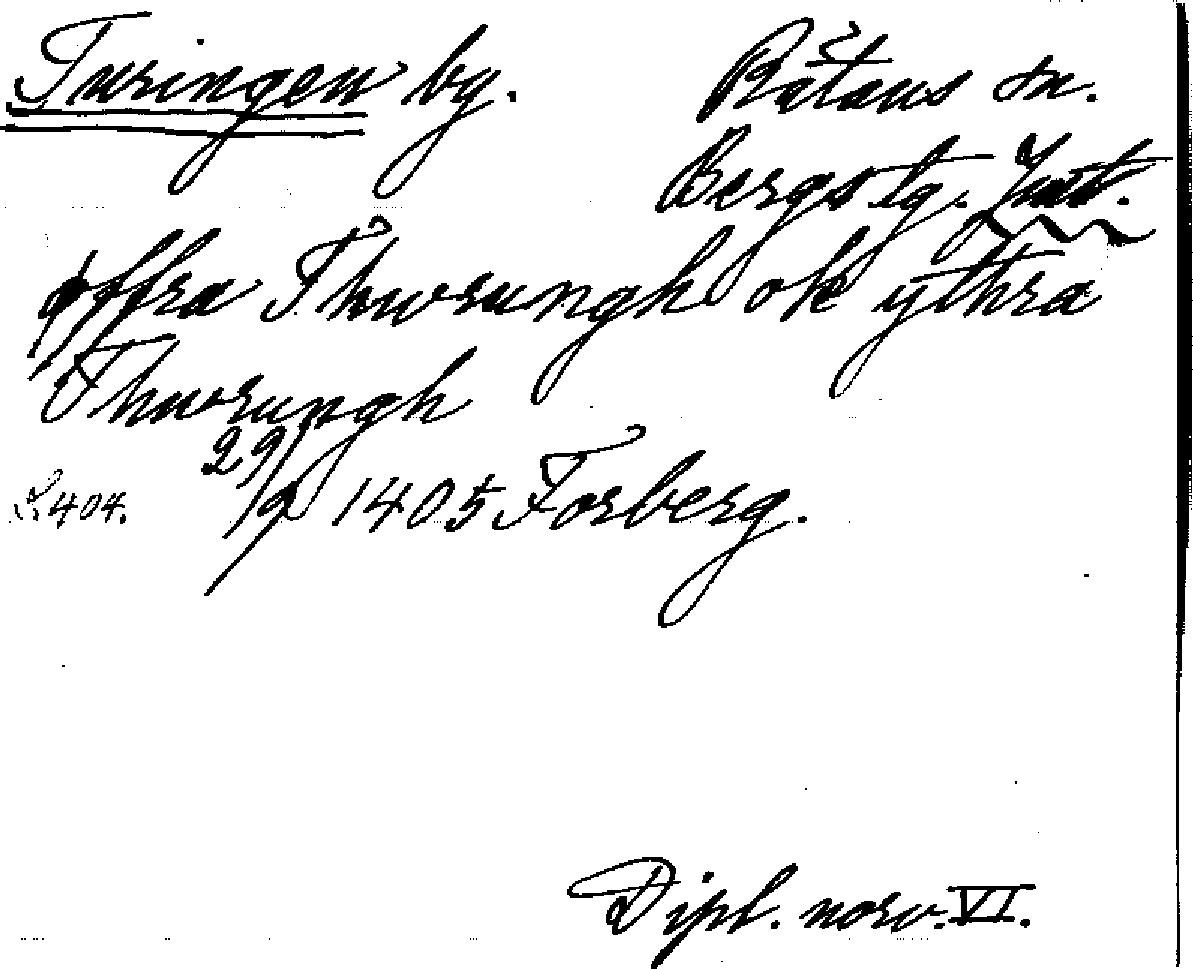 Turingen by. Rätans sn.
Bergs tg. Jmt.
øffra Thwrungh ok ythra
Thwrungh
S. 404. 29/9 1405 Forberg.
Dipl. norv. VI.